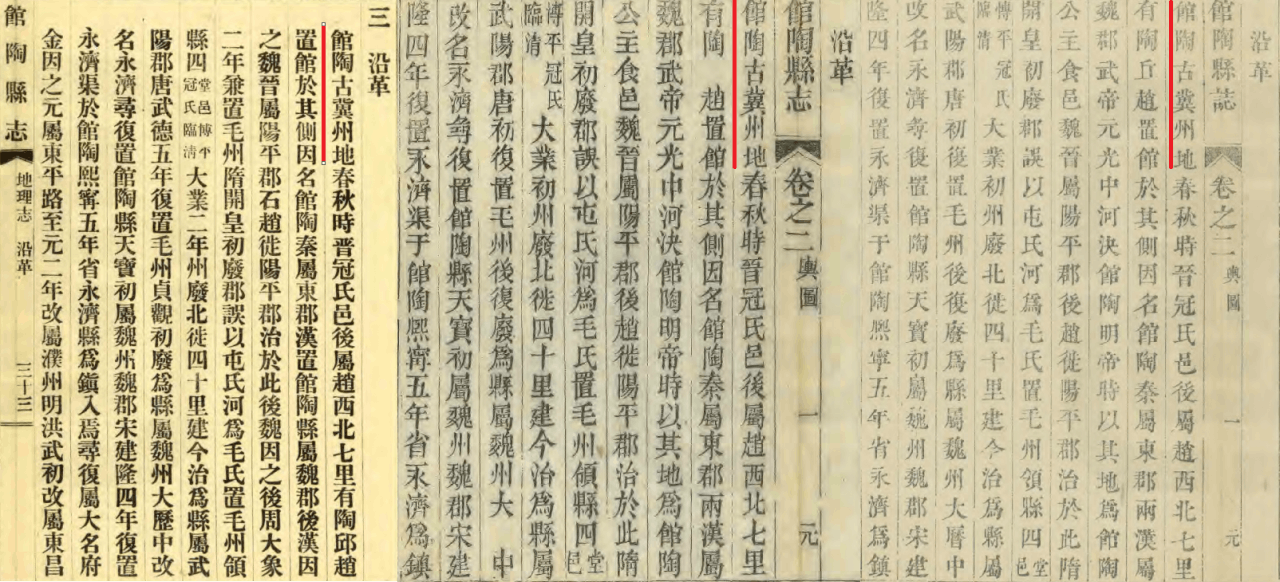 沿革
館陶縣誌 卷之二 輿圖 一 元
館陶古冀州地春秋時晉冠氏邑後屬趙西北七里
有陶丘趙置館於其側因名館陶秦屬東郡兩漢屬
魏郡武帝元光中河決館陶明帝時以其地爲館陶
公主食邑魏晉屬陽平郡後趙徙陽平郡治於此隋
開皇初廢郡誤以屯氏河爲毛氏置毛州領縣四堂邑
博平臨清冠氏大業初州廢北徙四十里建今治爲縣屬
武陽郡唐初復置毛州後復廢爲縣屬魏州大曆中
改名永濟尋復置館陶縣天寶初屬魏州魏郡宋建
隆四年復置永濟渠于館陶熙寧五年省永濟爲鎮
沿革
館陶縣志 卷之二 輿圖 一 元
館陶古冀州地春秋時晉冠氏邑後屬趙西北七里
有陶 趙置館於其側因名館陶秦屬東郡兩漢屬
魏郡武帝元光中河決館陶明帝時以其地爲館陶
公主食邑魏晉屬陽平郡後趙徙陽平郡治於此隋
開皇初廢郡誤以屯氏河爲毛氏置毛州領縣四堂邑
博平臨清冠氏大業初州廢北徙四十里建今治爲縣屬
武陽郡唐初復置毛州後復廢爲縣屬魏州大 中
改名永濟尋復置館陶縣天寶初屬魏州魏郡宋建
隆四年復置永濟渠于館陶熙寧五年省永濟爲鎮
三 沿革
館陶古冀州地春秋時晋冠氏邑後屬趙西北七里有陶邱趙
置館於其側因名館陶秦屬東郡漢置館陶縣屬魏郡後漢因
之魏晉屬陽平郡石趙徙陽平郡治於此後魏因之後周大象
二年兼置毛州隋開皇初廢郡誤以屯氏河爲毛氏置毛州領
縣四堂邑博平冠氏臨清大業二年州廢北徙四十里建今治爲縣屬武
陽郡唐武德五年復置毛州貞觀初廢爲縣屬魏州大歷中改
名永濟尋復置館陶縣天寶初屬魏州魏郡宋建隆四年復置
永濟渠於館陶熙寧五年省永濟縣爲鎭入焉尋復屬大名府
金因之元屬東平路至元二年改屬濮州明洪武初改屬東昌
館陶縣志 地理志 沿革 三十三